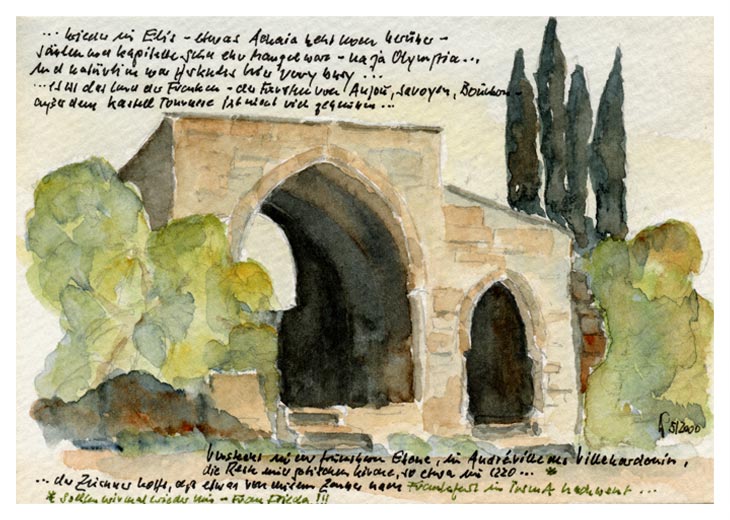 ... wieder in Elis - etwas Achaia weht noch herüber -
Säulen und Kapitelle schon eher Mangelware - na ja Olympia ...
Und natürlich war Herkules hier very busy ...
... es ist das Land der Franken - der Fürsten von Anjou, Savoyen, Bourbon -
außer dem Kastell Tornese ist nicht viel geblieben ...
5/2000
in der fruchtbaren Ebene, in Andréville des Villehardouin,
die Reste einer gotischen Kirche, so etwa um 1220 ... *
... der Zeichner hofft, daß etwas von diesem Zauber nach Frankfurt in ...
* sollten wir mal wieder hin - Frau Frieda !!!